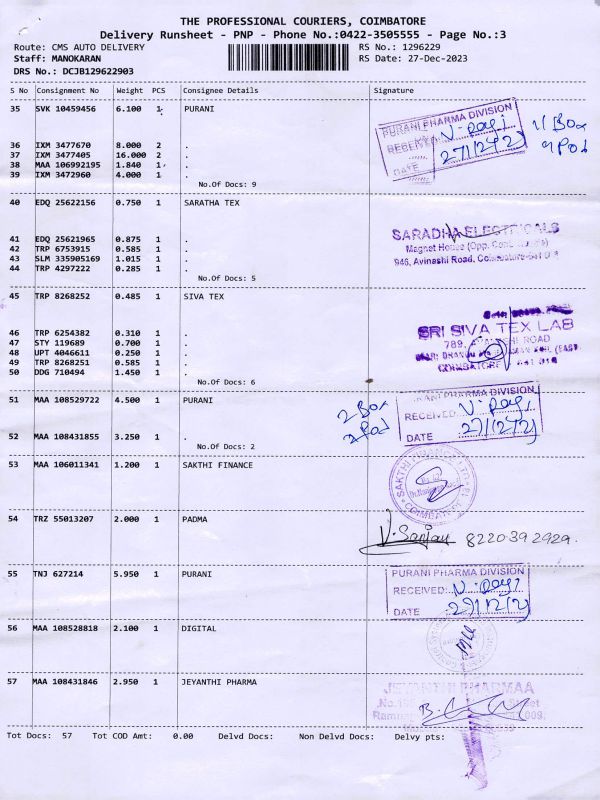 THE PROFESSIONAL COURIERS, COIMBATORE
Delivery Runsheet - PNP - Phone No.:0422-3505555 - Page No.:3
Route: CMS AUTO DELIVERY RS No.: 1296229
Staff: MANOKARAN RS Date: 27-Dec-2023
DRS No.: DCJB129622903
S No Consignment No Weight PCS Consignee Details Signature
35 SVK 10459456 6.100 1 PURANI
PURANI PHARMA DIVISION
RECEIVED
DATE
11 Box
36 IXM 3477670 8.000 2 .
37 IXM 3477405 16.000 2 .
38 MAA 106992195 1.840 1 .
39 IXM 3472960 4.000 1 .
No.Of Docs: 9
40 EDQ 25622156 0.750 1 SARATHA TEX
SARADHA ELECTRICALS
Magnet House (Opp.
946, Avinashi Road,
41 EDQ 25621965 0.875 1 .
42 TRP 6753915 0.585 1 .
43 SLM 335905169 1.015 1 .
44 TRP 4297222 0.285 1 .
No.Of Docs: 5
45 TRP 8268252 0.485 1 SIVA TEX
SRI SIVA TEX LAB
789, ROAD
COIMBATORE
46 TRP 6254382 0.310 1 .
47 STY 119689 0.700 1 .
48 UPT 4046611 0.250 1 .
49 TRP 8268251 0.585 1 .
50 DDG 710494 1.450 1 .
No.Of Docs: 6
51 MAA 108529722 4.500 1 PURANI
2 Box
PURANI PHARMA DIVISION
RECEIVED
DATE
52 MAA 108431855 3.250 1 .
No.Of Docs: 2
53 MAA 106011341 1.200 1 SAKTHI FINANCE
54 TRZ 55013207 2.000 1 PADMA
V. Sanjay 8220392929.
55 TNJ 627214 5.950 1 PURANI
PURANI PHARMA DIVISION
RECEIVED:
DATE
56 MAA 108528818 2.100 1 DIGITAL
57 MAA 108431846 2.950 1 JEYANTHI PHARMA
JEYANTHI PHARMAA
Tot Docs: 57 Tot COD Amt: 0.00 Delvd Docs: Non Delvd Docs: Delvy pts: